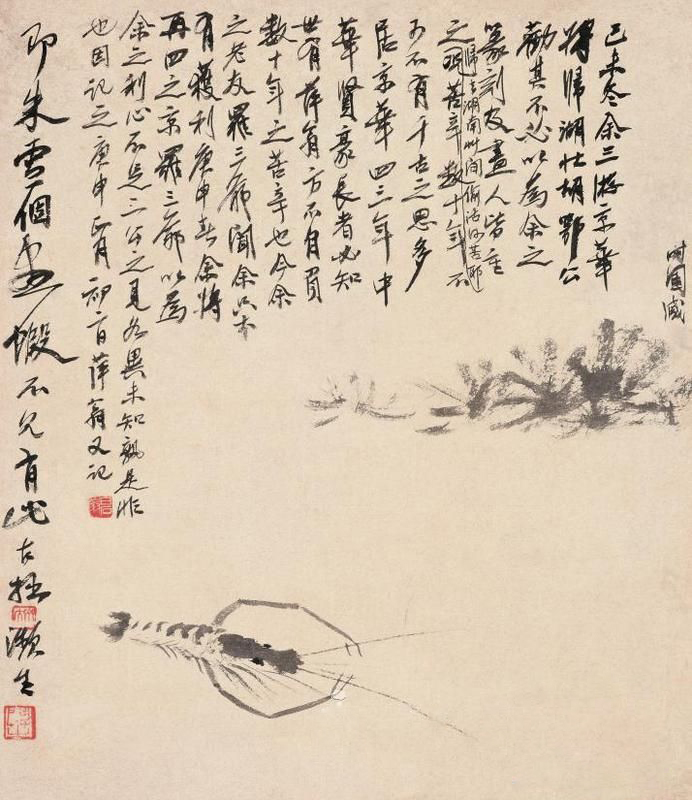 己未冬余三游京華
將歸湖北胡鄂公
勸其不必以為余之
篆刻及畫人皆重
之歸去湖南草間偷活何苦耶況苦辛數十年不
可不有千古之思多
居京華四三年中
華賢豪長者必知
世有萍翁方不自負
數十年之苦辛也今余
之老友羅三爺聞余只本
有獲利庚申春余將
再四之京羅三爺以為
余之利心不足二公之見各異未知孰是非
也因記之庚申正月初 萍翁又記
即朱雪個畫蝦不見有此古拙 瀕生